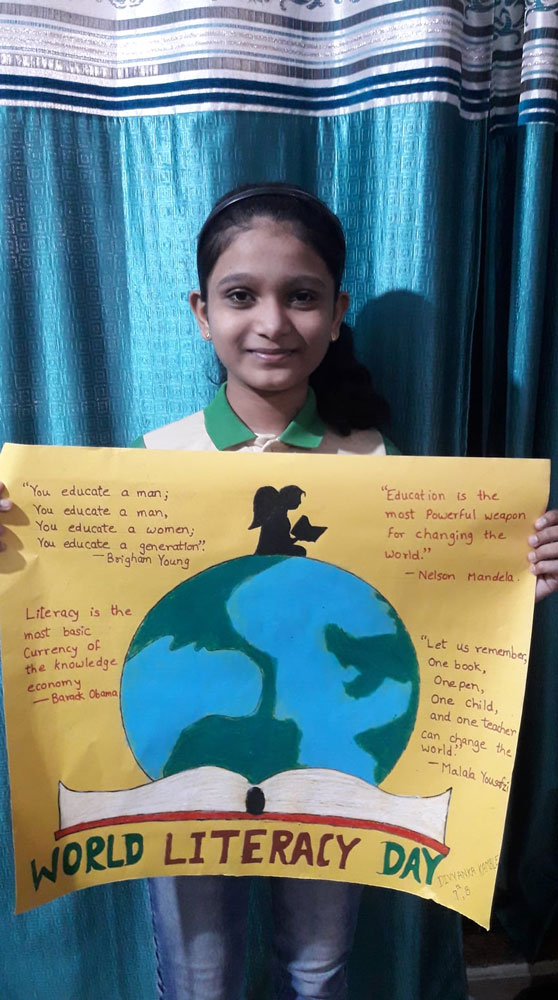 "You educate a man;
You educate a man,
You educate a women;
You educate a generation".
— Brigham Young
Literacy is the
most basic
Currency of
the knowledge
economy
— Barack Obama
"Education is the
most Powerful weapon
for changing the
world."
— Nelson Mandela.
"Let us remember,
One book,
One pen,
One child,
and one teacher
can change the
world."
— Malala Yousafzi
WORLD LITERACY DAY
DIVYANKA KAMBLE
7th, B